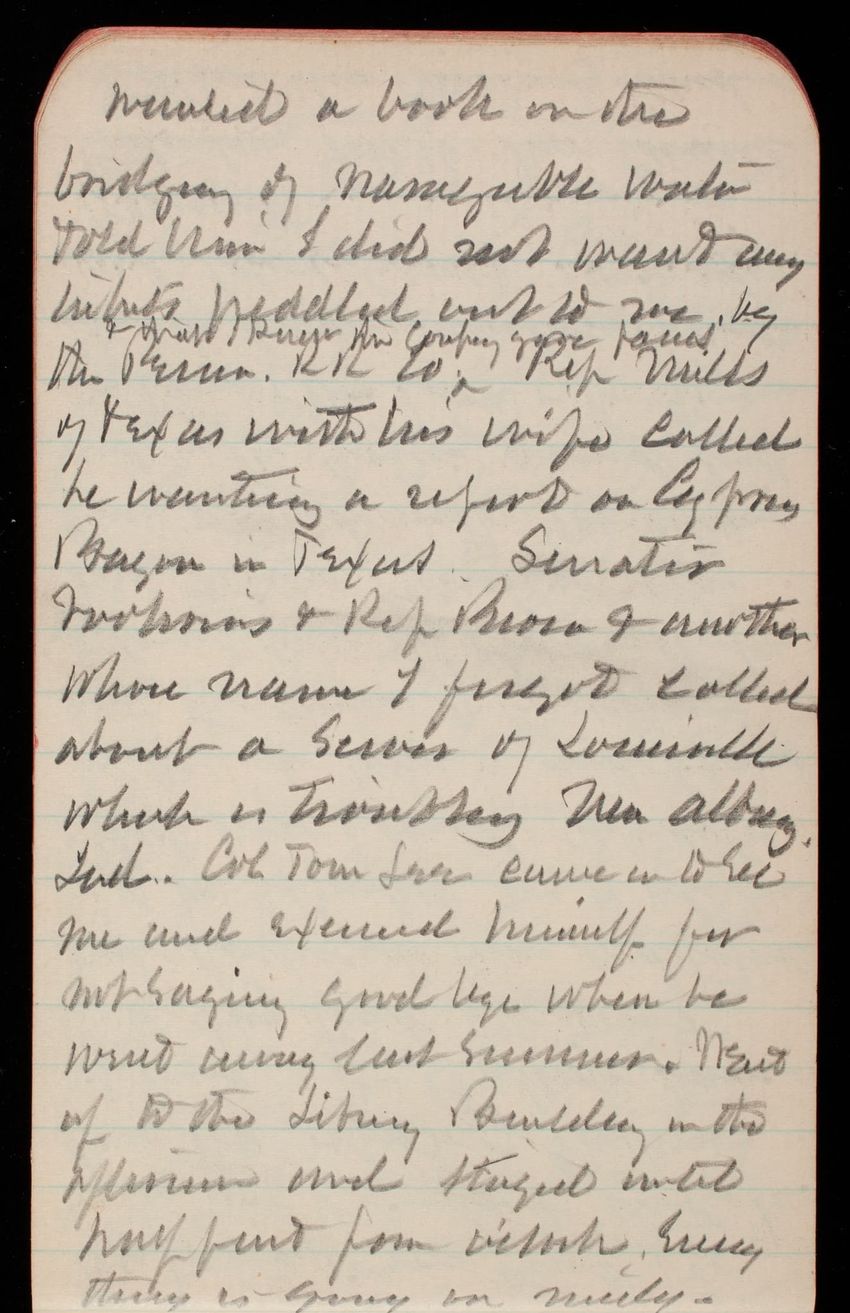 wanted a book on the
bridging of navigable water
told him I did not want any
tributs peddled out to me, by
& that I knew the Company gave passes
the Penna. RR Co. Rep Mills
of Texas with his wife called
he wanting a report on Cypress
Bayou in Texas. Senator
Voorhies & Rep Brown & another
whose name I forgot called
about a Sewer of Louisville
which is troubling New Albany.
Ind.. Col Tom came in to See
me and excused himself for
not Saying good bye when he
went away last Summer. Went
up to the Library Building in the
afternoon and stayed until
half past four o'clock. Every
thing is going on nicely.